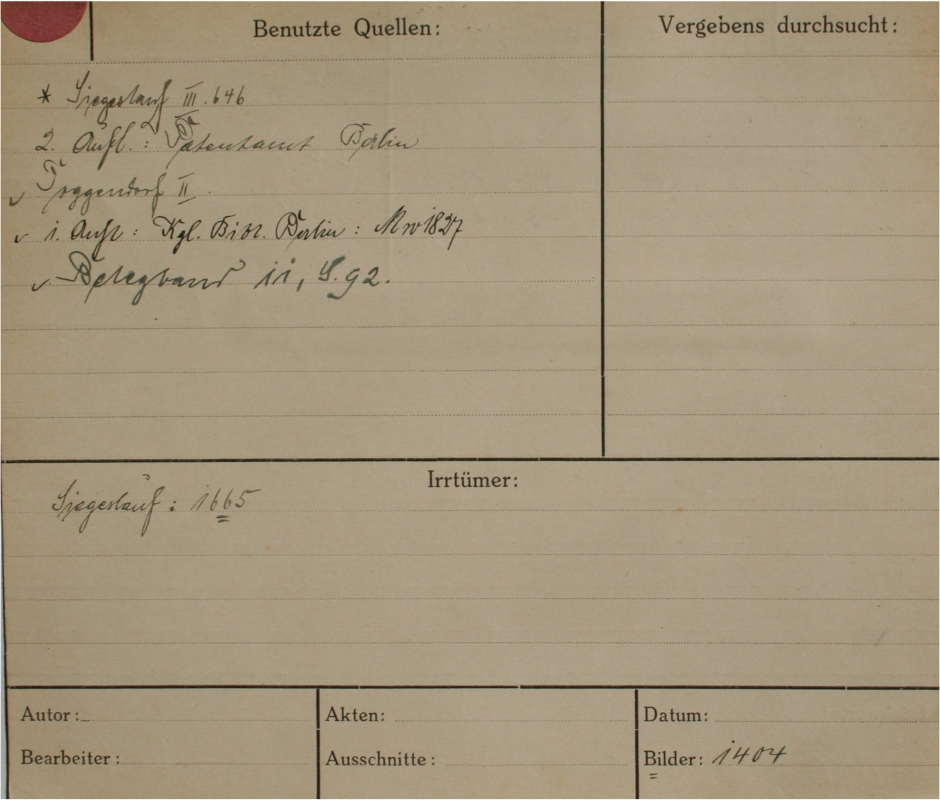 Benutzte Quellen:
Vergebens durchsucht:
* Siegeslauf III. 646
2. Aufl.: Patentamt Berlin
✓ Poggendorf II
✓ 1. Aufl: Kgl. Bibl. Berlin: Mw 1827
✓ Belegband 11, S. 92.
Irrtümer:
Siegeslauf: 1665
Autor:
Akten:
Datum:
Bearbeiter:
Ausschnitte:
Bilder: 1404